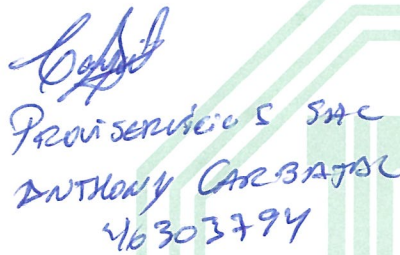 PROVISERVICIOS SAC
ANTHONY CARBAJAL
46303794